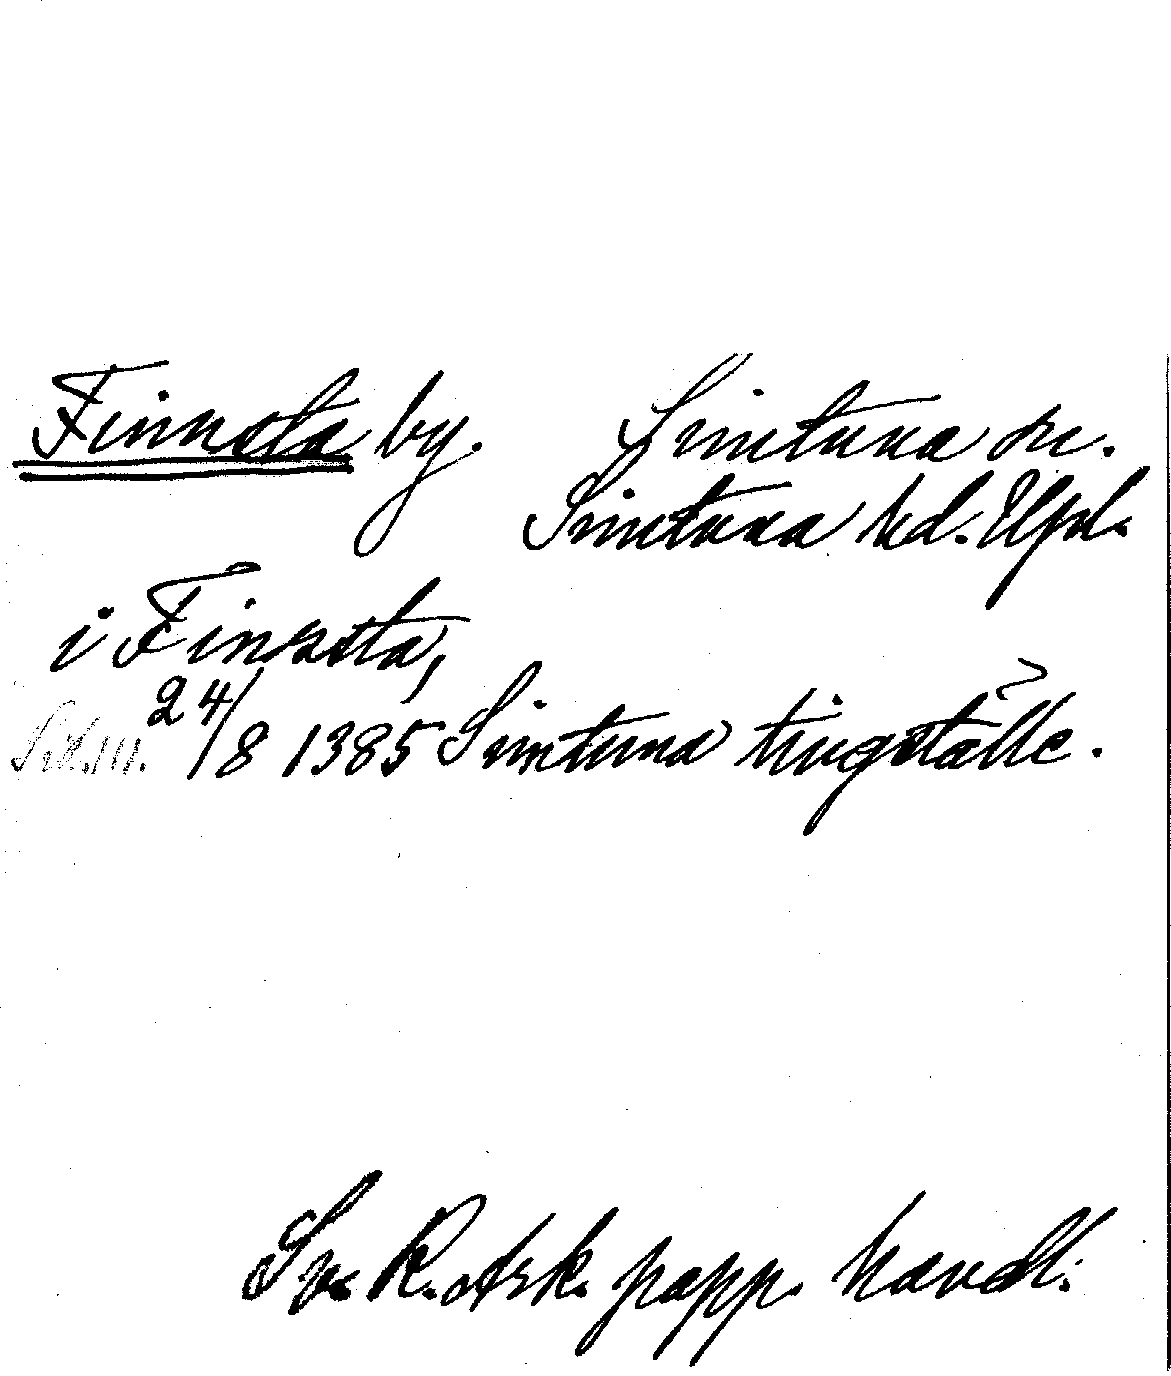 Finnsta by. Simtuna sn.
Simtuna hd. Upl.
i Finnsta,
24/8 1385 Simtuna tingställe.
Sv. R. Ark. papp. handl.